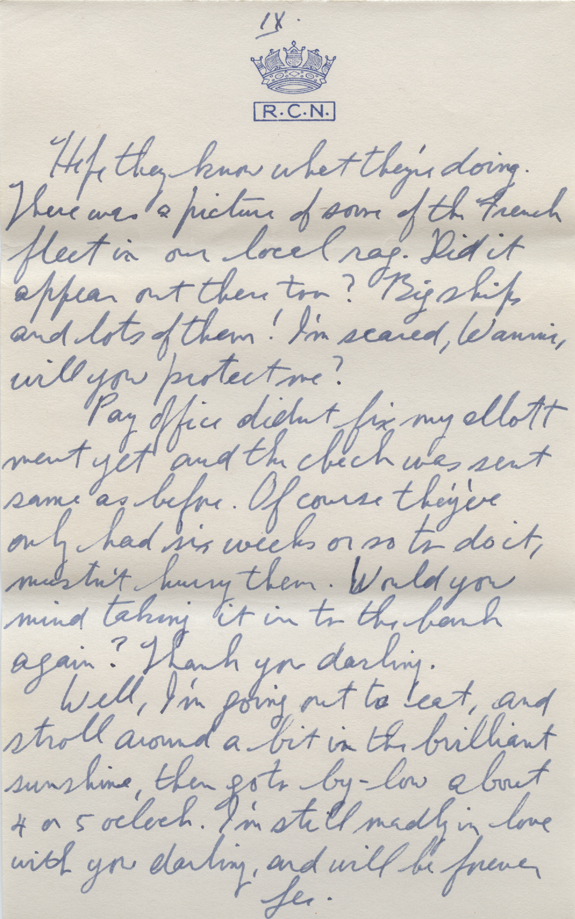 IX.
R.C.N.
Hope they know what they're doing.
There was a picture of some of the French
fleet in our local rag. Did it
appear out there too? Big ships
and lots of them! I'm scared,
will you protect me?
Pay office didn't fix my allott
ment yet and the check was sent
same as before. Of course they've
only had six weeks or so to do it,
mustn't hurry them. Would you
mind taking it in to the bank
again? Thank you darling.
Well, I'm going out to 'eat, and
stroll around a bit in the brilliant
sunshine, then go to by-low about
4 or 5 oclock. I'm still madly in love
with you darling, and will be forever
Les.